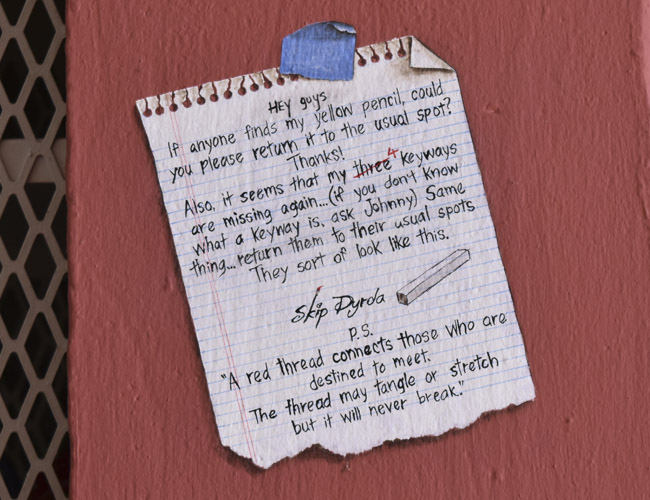 Hey guys
If anyone finds my yellow pencil, could
you please return it to the usual spot?
Thanks!
Also, it seems that my three 4 keyways
are missing again...(if you don't know
what a keyway is, ask Johnny) Same
thing...return them to their usual spots
They sort of look like this.
Skip Dyrda
P.S.
"A red thread connects those who are
destined to meet.
The thread may tangle or stretch
but it will never break."